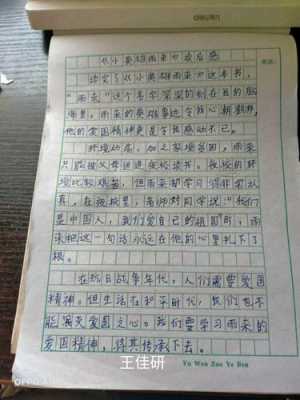 《小英雄雨来》读后感
读完了《小英雄雨来》这本书，
“雨来”这个名字深深的刻在我的脑
海里。雨来的英雄事迹令我心潮澎湃，
他的爱国精神更是令我感动不已。
环境动荡，加之家境贫困，雨来
只能被父母送进夜校读书。夜校的环
境比较艰苦，但雨来却学习得非常认
真。在夜校里，老师对同学说：“我们
是中国人，我们爱自己的祖国”时，雨
来把这一句话永远在他的心里扎下了
根。
在抗日战争年代，人们需要爱国
精神。但生活在和平时代，我们也不
能演灭爱国之心。我们要学习雨来的
爱国精神，将其传承下去。
王佳研
Yu Wen Zuo Ye Ben